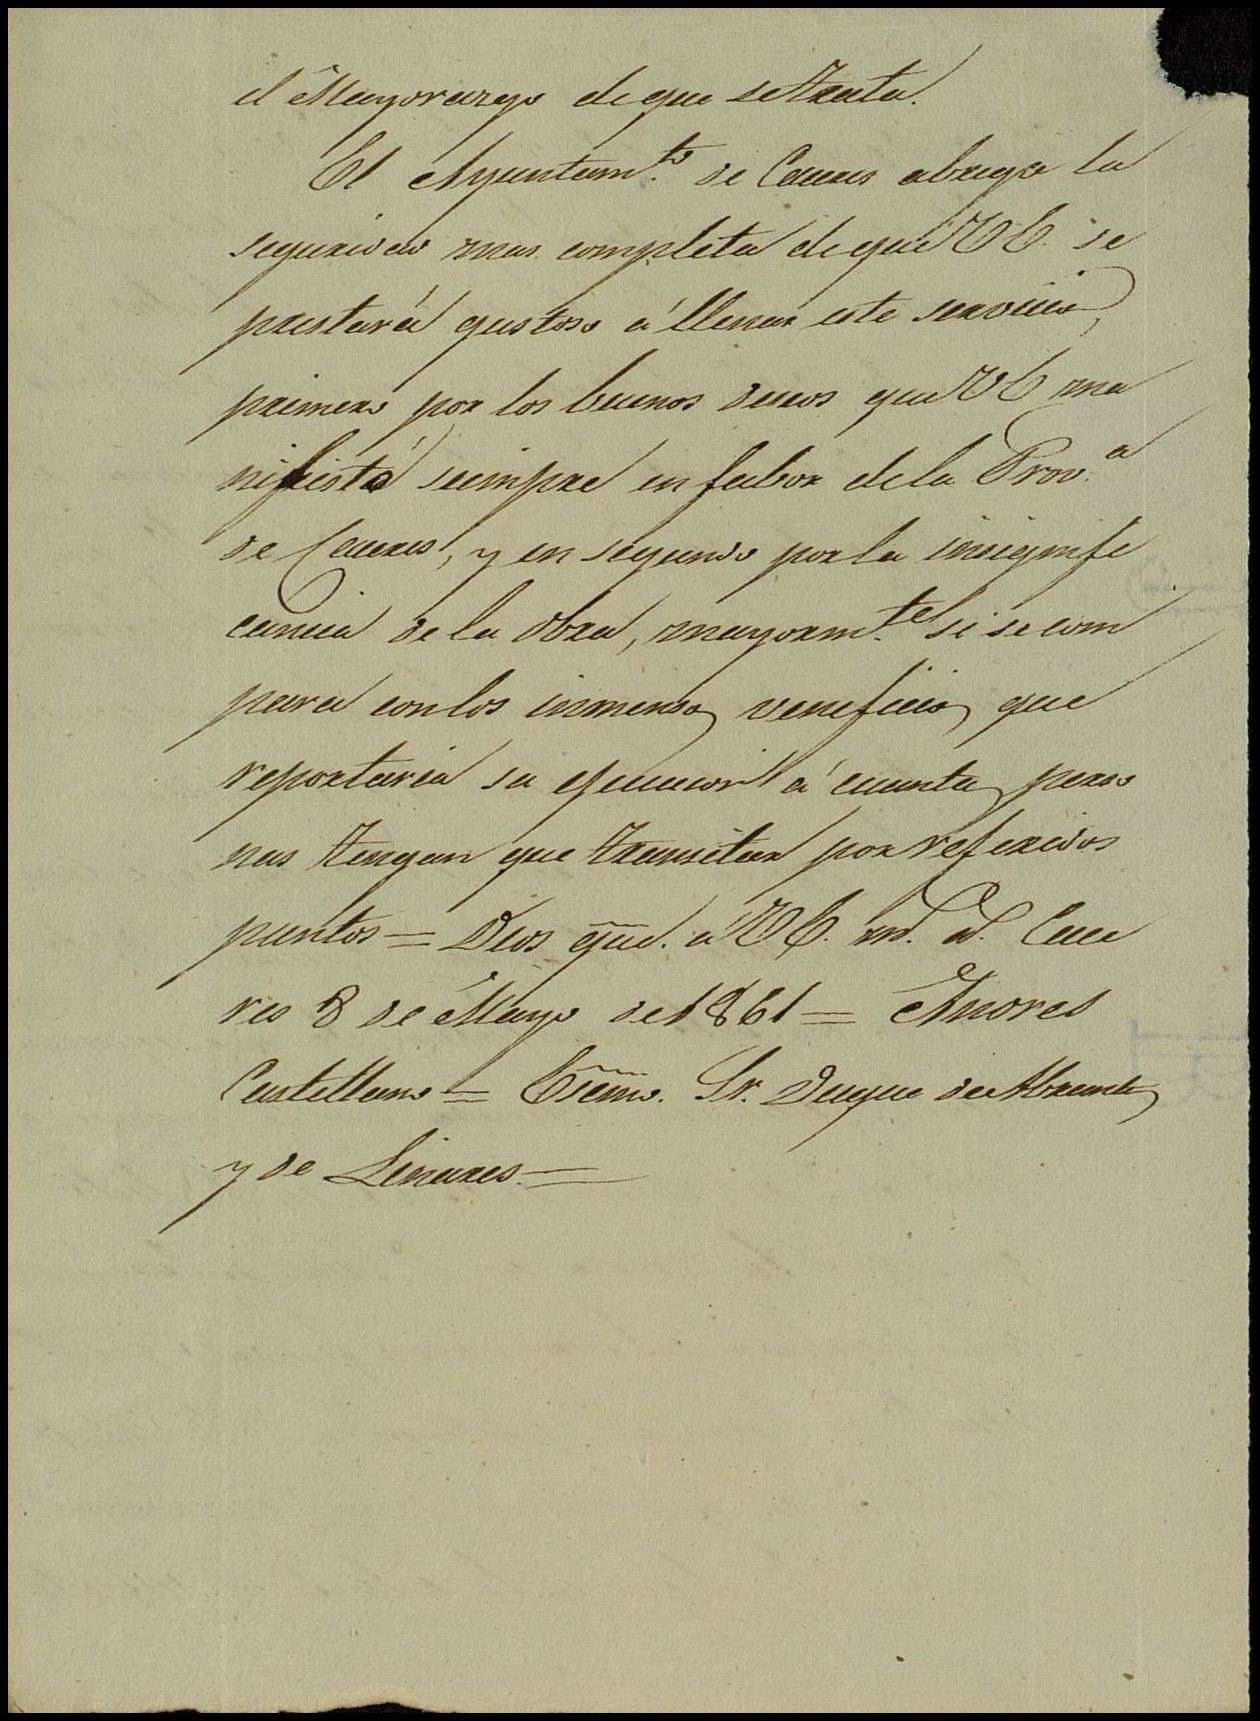 el Mayorazgo de que se trata.
El Ayuntam.to de Caceres abriga la
seguridad mas completa de que V E. se
prestará gustoso á llenar este servicio,
primero por los buenos deseos que V E ma
nifiesta siempre en fabor de la Prov.a
de Caceres, y en segundo por la insignifi
cancia de la obra, mayorm.te si se com
para con los inmensos veneficios que
reportaria su ejecucion á cuantas perso
nas tengan que transitar por referidos
puntos = Dios gue. á V E. m.s a.s Cace
res 8 de Mayo de 1861 = Andres
Castellano = Escmo. Sr. Duque de Abrantes
y de Linares. =